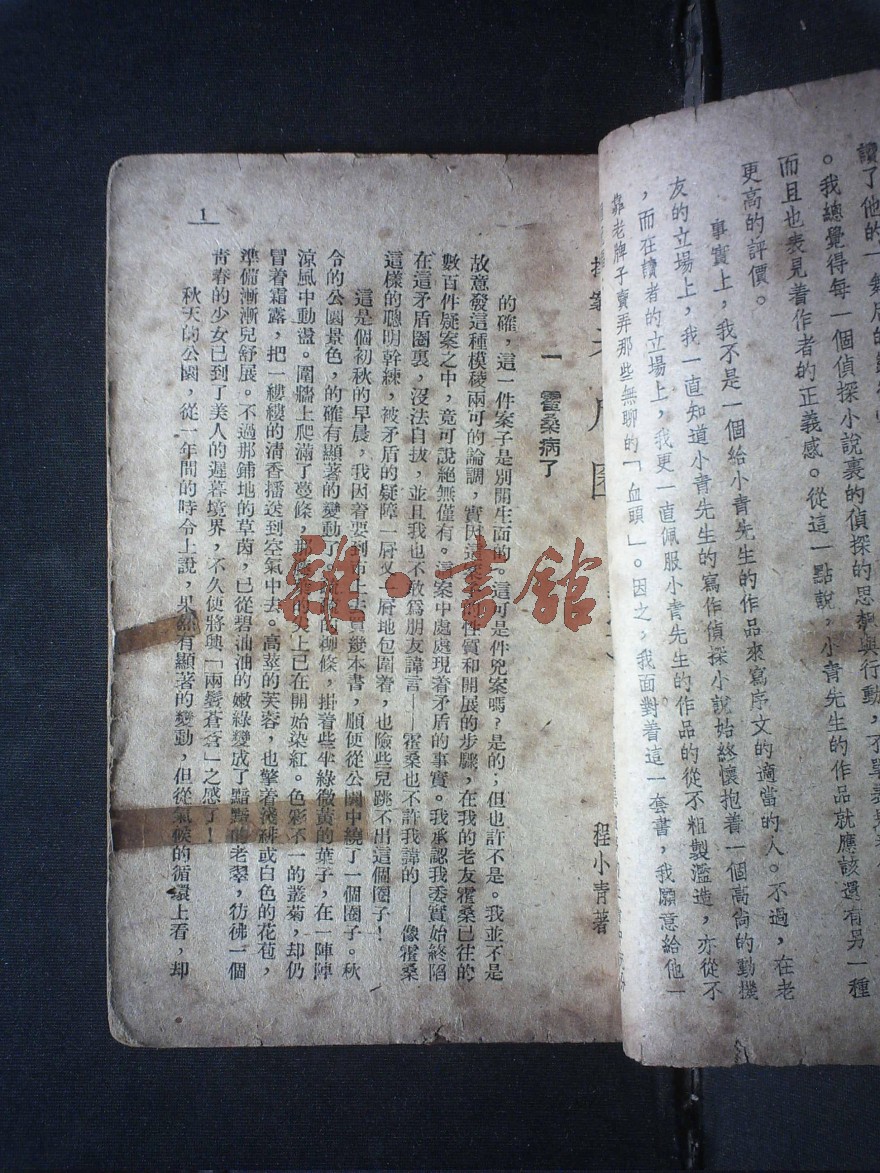 讀了他的一
。我總覺得每一個偵探小說裏的偵探的思想與行動,不單
而且也表見着作者的正義感。從這一點說,小青先生的作品就應該還有另一種
更高的評價。
事實上,我不是一個給小青先生的作品來寫序文的適當的人。不過,在老
友的立場上,我一直知道小青先生的寫作偵探小說始終懷抱着一個高尙的動機
,而在讀者的立場上,我更一直佩服小青先生的作品的從不粗製濫造,亦從不
靠老牌子賣弄那些無聊的「血頭」。因之,我面對着這一套書,我願意給他一
程小青著
一 霍桑病了
的確,這一件案子是別開生面的。這可是件兇案嗎?是的;但也許不是。我並不是
故意發這種模稜兩可的論調,實因這 性質和開展的步驟,在我的老友霍桑已往的
數百件疑案之中,竟可說絕無僅有。這案中處處現着矛盾的事實。我承認我委實始終陷
在這矛盾圈裏,沒法自拔,並且我也不敢爲朋友諱言——霍桑也不許我諱的——像霍桑
這樣的聰明幹練,被矛盾的疑障一層又一層地包圍着,也險些兒跳不出這個圈子!
這是個初秋的早晨,我因着要到市上去買幾本書,順便從公園中繞了一個圈子。秋
令的公園景色,的確有顯著的變動了。 柳條,掛着些半綠微黃的葉子,在一陣陣
涼風中動盪。圍牆上爬滿了蔓條,那 的尖上已在開始染紅。色彩不一的叢菊,却仍
冒着霜露,把一縷縷的清香播送到空氣中去。高莖的芙蓉,也擎着淺緋或白色的花苞,
準備漸漸兒舒展。不過那鋪地的草茵,已從碧油油的嫩綠變成了黯黯的老翠,彷彿一個
靑春的少女已到了美人的遲暮境界,不久便將興「兩鬢蒼蒼」之感了!
秋天的公園,從一年間的時令上說,果然有顯著的變動,但從氣候的循環上看,却
1
雜·書館